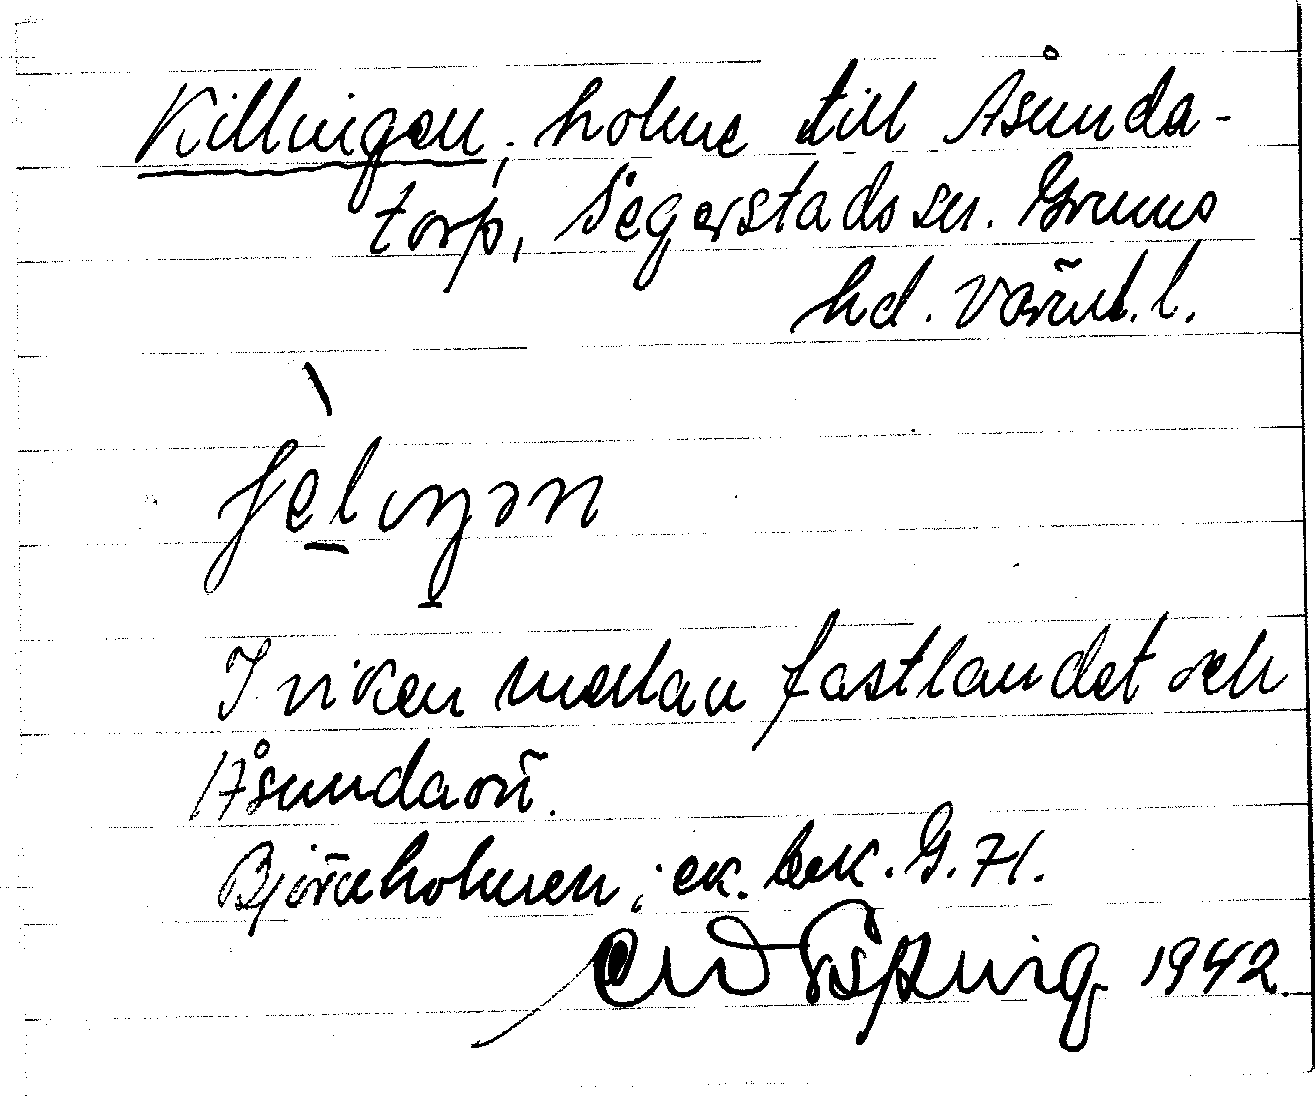 Killingen; holme till Åsunda-
torp, Segerstads sn. Grums
hd. Värml. l.
I viken mellan fastlandet och
Åsundaön.
Björnholmen; ek. bek. G. 71.
1942.